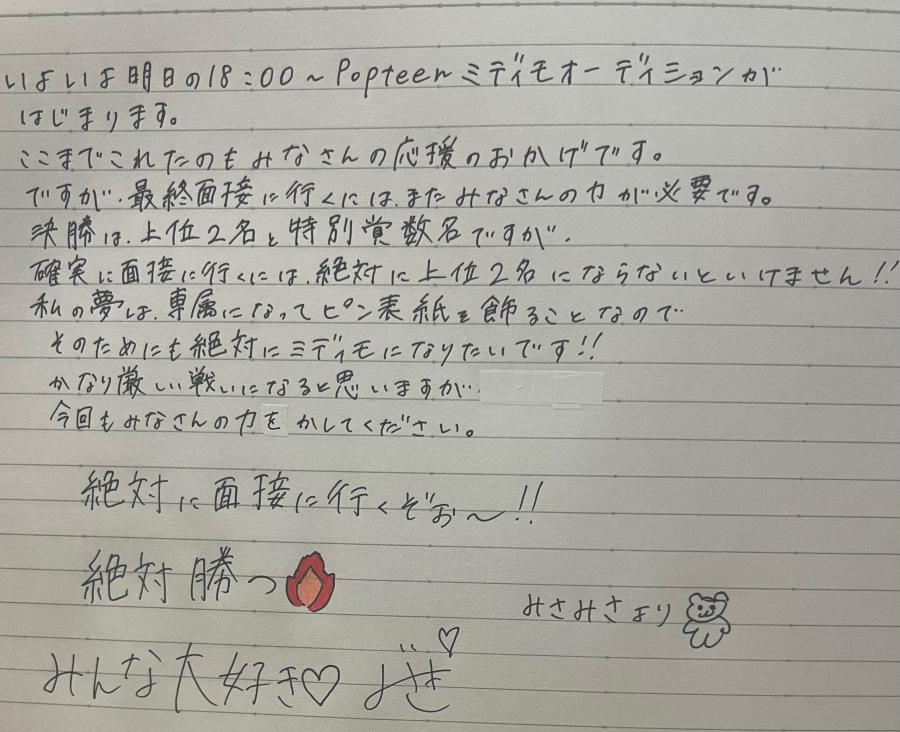 いよいよ明日の18:00~Popteenミディモオーディションが
はじまります。
ここまでこれたのもみなさんの応援のおかげです。
ですが、最終面接に行くには、またみなさんの力が必要です。
決勝は、上位2名と特別賞数名ですが、
確実に面接に行くには、絶対に上位2名にならないといけません!!
私の夢は、専属になってピン表紙を飾ることなので
そのためにも絶対にミディモになりたいです!!
かなり厳しい戦いになると思いますが、
今回もみなさんの力をかしてください。
絶対に面接に行くぞぉ~!!
絶対勝つ
みさみさより
みんな大好き♡